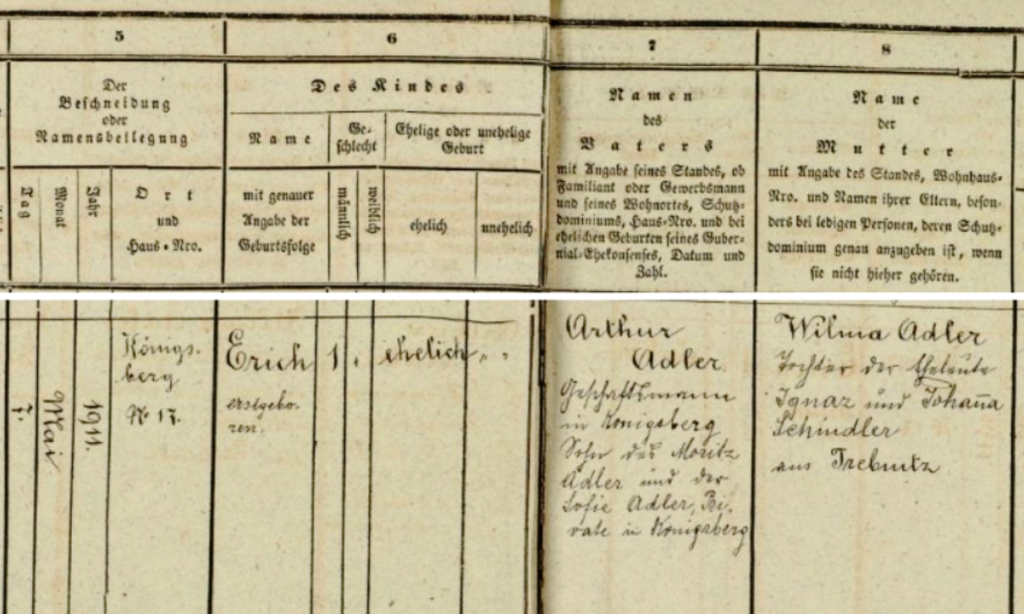 5
Der
Beschneidung
oder
Namensbeilegung
Tag
Monat
Jahr
Ort
und
Haus-Nro.
6
Des Kindes
Name
mit genauer
Angabe der
Geburtsfolge
Ge-
schlecht
männlich
weiblich
Ehelige oder unehelige
Geburt
ehelich
unehelich
7
Namen
des
Vaters
mit Angabe seines Standes, ob
Familiant oder Gewerbsmann
und seines Wohnortes, Schutz-
dominiums, Haus-Nro. und bei
ehelichen Geburten seines Guber-
nial-Ehekonsenses, Datum und
Zahl.
8
Name
der
Mutter
mit Angabe des Standes, Wohnhaus-
Nro. und Namen ihrer Eltern, beson-
ders bei ledigen Personen, deren Schutz-
dominium genau anzugeben ist, wenn
sie nicht hieher gehören.
7.
Mai
1911.
Königs-
berg
No 17.
Erich
erstgebo-
ren.
1
ehelich
Arthur
Adler
Geschäftsmann
in Königsberg
Sohn des Moritz
Adler und der
Sofie Adler, Pri-
vate in Königsberg
Wilma Adler
Tochter der Eheleute
Ignaz und Johana
Schindler
aus Trebnitz